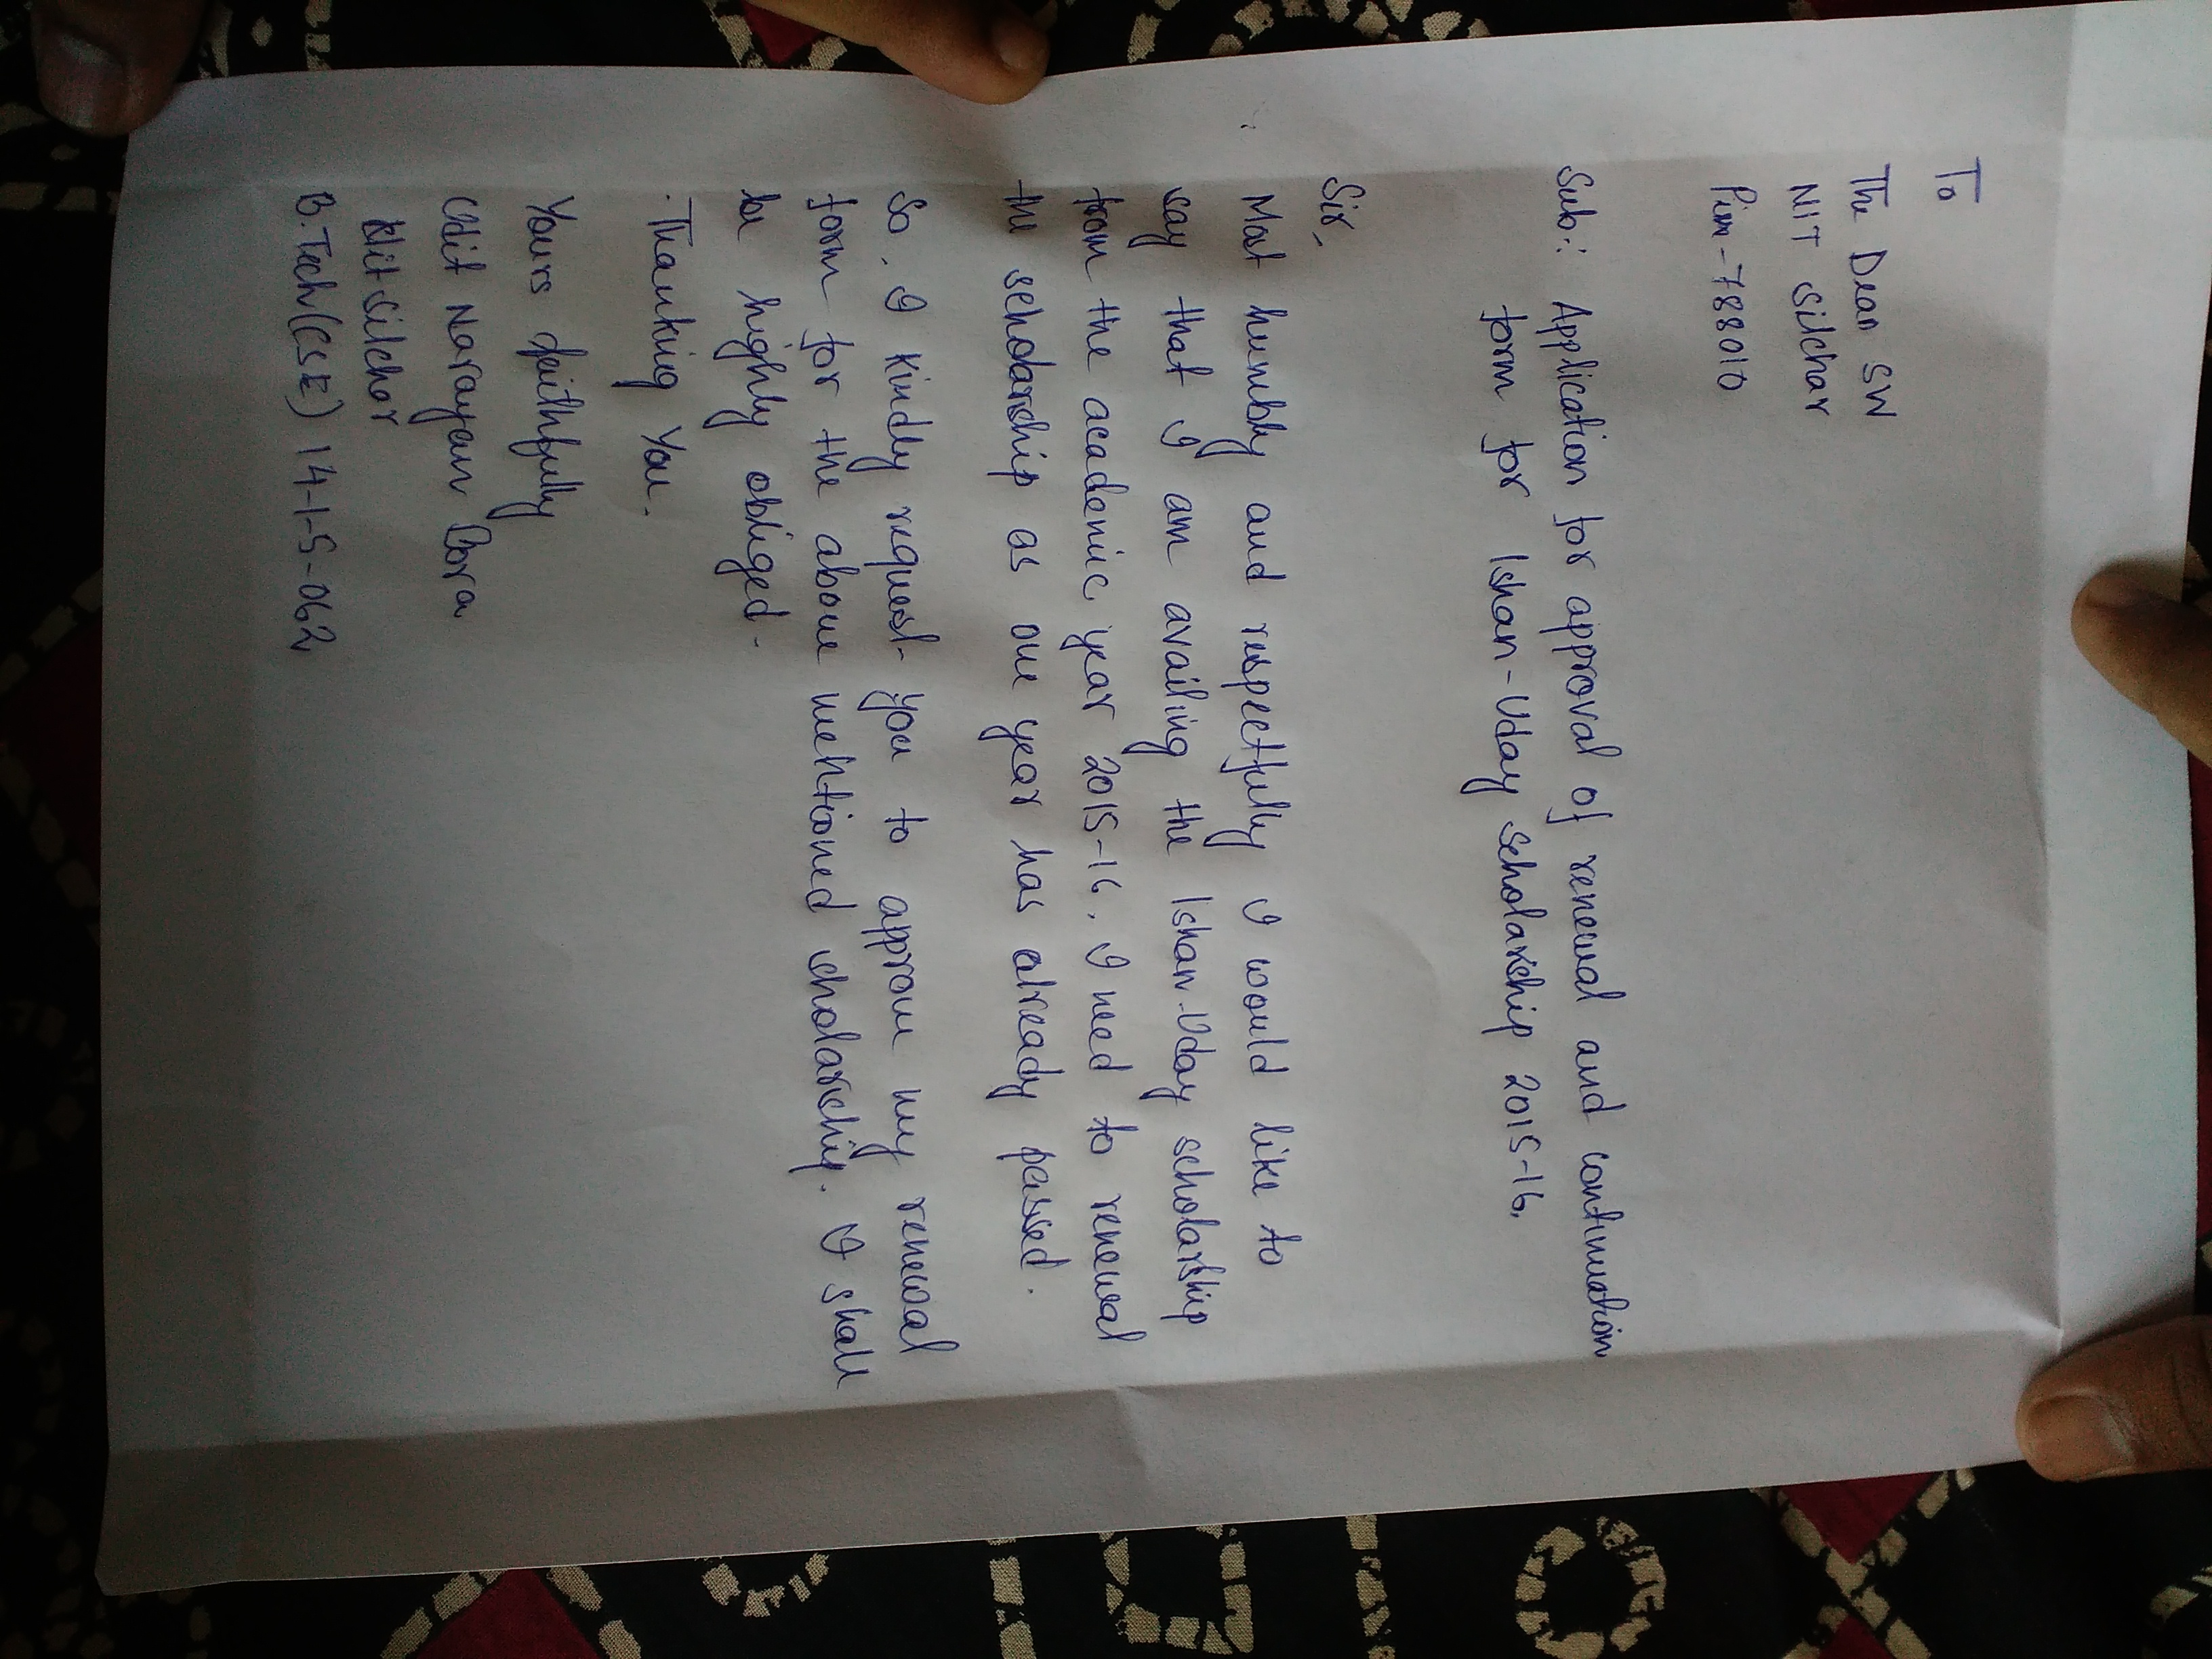 To
The Dean SW
NIT Silchar
Pin-788010
Sub:: Application for approval of renewal and continuation
form for Ishan-Uday Scholarship 2015-16.
Sir,
Most humbly and respectfully I would like to
say that I am availing the Ishan-Uday scholarship
from the academic year 2015-16. I need to renewal
the scholarship as one year has already passed.
So, I kindly request you to approve my renewal
form for the above mentioned scholarship. I shall
be highly obliged.
Thanking You.
Yours faithfully
Udit Narayan Bora
Nit Silchar
B.Tech(CSE) 14-1-5-062